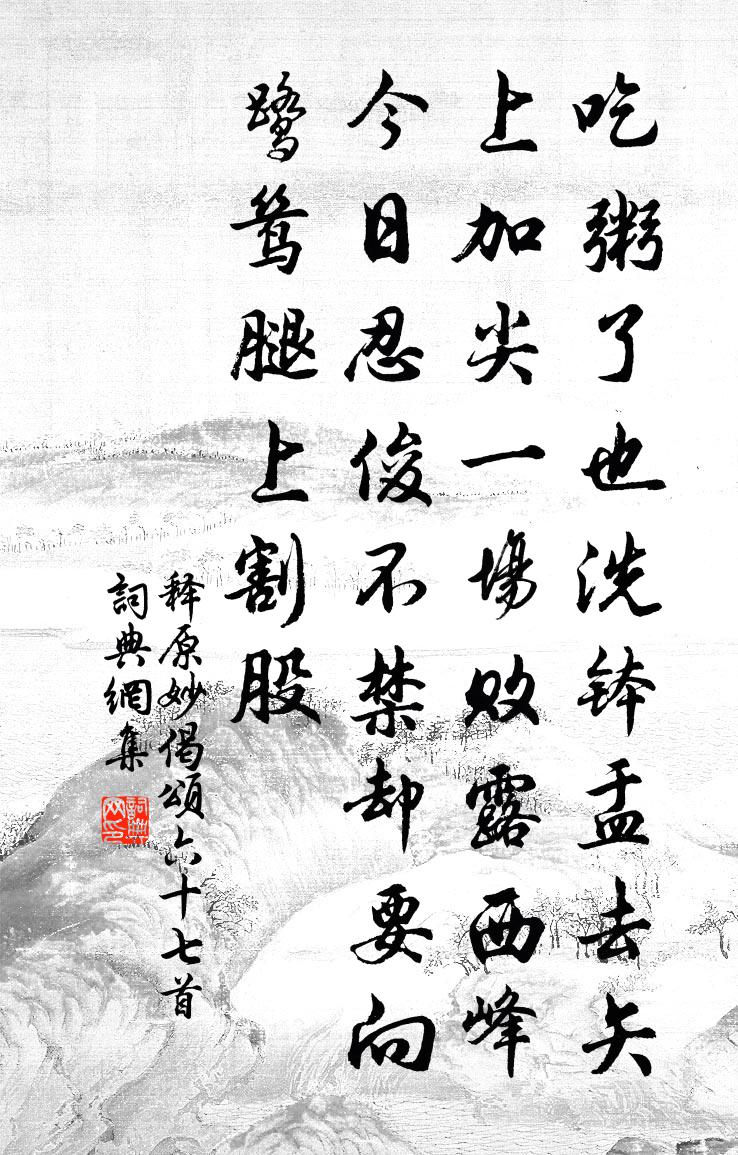 吃粥了也洗钵盂去矢
上加尖一場敗露西峰
今日忍俊不禁却要向
鷺鷥腿上割股
释原妙偈頌六十七首
詞典網集